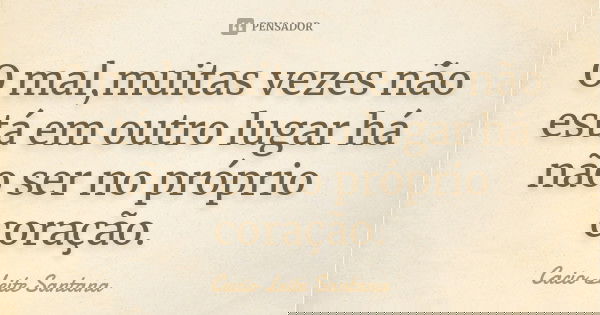 PENSADOR
O mal,muitas vezes não
está em outro lugar há
não ser no próprio
coração.
Cacio Leite Santana